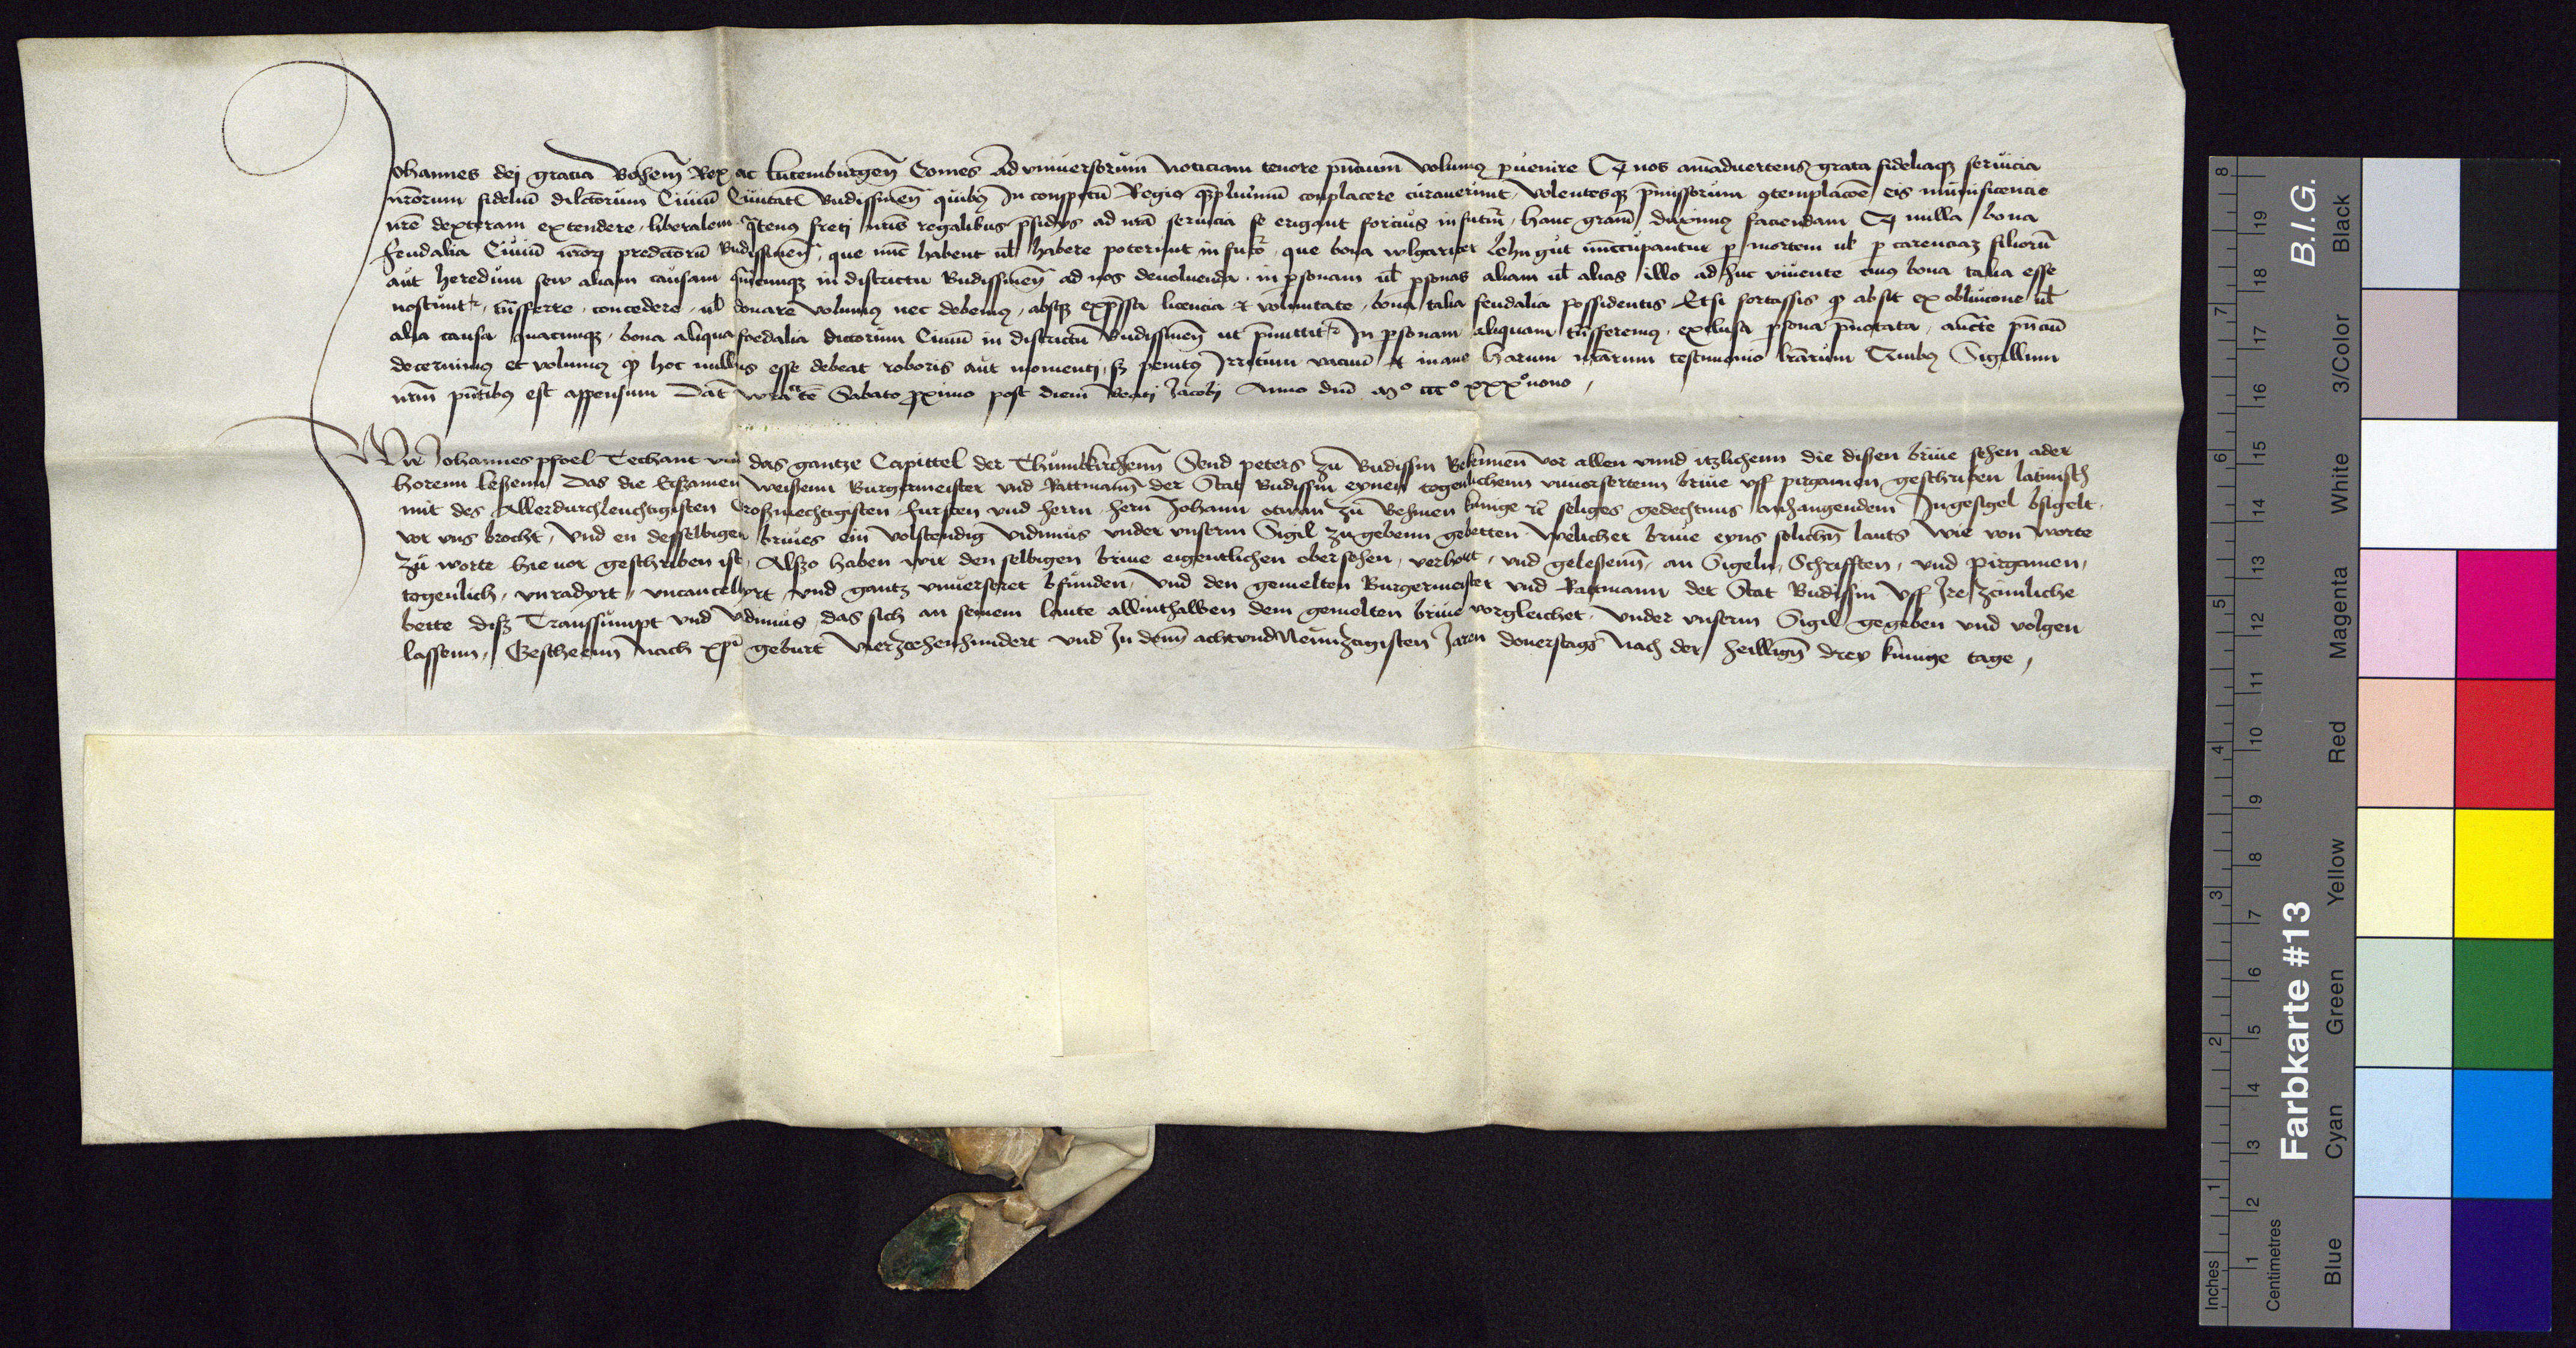 Johannes dej gratia Bohem̄ Rex ac Lutemburgen̄ Comes Ad vniuersorum noticiam tenore pn̄cium volumꝰ ꝑuenire Qͫ nos aīaduertens grata fideliaqꝫ seruicia
nr̄orum fideliū dilc̄torum Ciuiū Ciuitatꝭ Budissinen̄ quibꝫ In conspc̄tū Regio qͣꝫplurimū conplacere curauerunt volentesqꝫ p̄missorum ꝯtemplacōe eis munificencie
nr̄e dexteram extendere liberalem qͣtenꝰ freti nr̄is regalibus p̄sidijs ad nr̄a seruicia se erigant forcius in futur̄ hanc grām duximꝰ faciendam Qͫ nulla bona
feudalia Ciuiū nr̄orꝫ predictorū Budissinen̄ que nūc habent ul̄ habere poterint in futꝰ que bona wlgariter Lehngut nūccupantur ꝑ mortem ul̄ ꝑ carenciaꝫ filiorū
aut heredum sew aliam causam qͣmcunqꝫ in districtu Budissinen̄ ad nos deuoluenda in ꝑsonam ul̄ ꝑsonas aliam ul̄ alias illo adhuc viuente cuiꝰ bona talia esse
noscuntͬ trn̄sferre concedere ul̄ donare volumꝰ nec debemꝰ absqꝫ exp̄ssa licencia et voluntate bona talia feudalia possidentis Etsi fortassis qͫ absit ex obliuione ul̄
alia causa quacunqꝫ bona aliqua foedalia dictorum Ciuiū in districtu Budissinen̄ ut p̄mittitͬ In ꝑsonam aliquam trn̄sferemꝰ exclusa ꝑsona p̄notata auct̄e pn̄ciū
decernimꝰ et volumꝰ qͫ hoc nullius esse debeat roboris aut momenti sꝫ penitꝰ Irritum vacuū et inane Harum nr̄arum testimonio lr̄arum Quibꝫ Sigillum
nr̄m pn̄tibꝫ est appensum Dat̄ Wratͭ Sabato ꝓximo post diem Beati Jacobi Anno dnī mͦ cccͦ xxxͦ nono
Wir Johannes pfoel Techant vnd das gantze Capittel der Thumkirchenn Send peters zu Budissin Bekennen vor allen vnnd itzlichenn die dissen briue sehen ader
horenn lessenn Das die Erszamen weissenn Burgermeister vnd Rattmann̄ der Stat Budissin eynen togenlichenn vnuersertenn briue vff pirgamen geschriben latinisch
mit des Allerdurchleuchtigisten Groszmechtigisten fursten vnd herrn hern̄ Johann etwan zu Behmen kunige ꝛc̄ seliges gedechtnus anhangendem Ingesigel bsigelt
vor vns brocht Vnd en desselbigen briues ein volstendig vidimus vnder vnserm Sigil zugebenn gebetten welicher briue eyns solichn̄ lauts wie von worte
zu worte hie uor geschriben ist Alszo haben wir den selbigen briue eigentlichen obersehen verhort vnd gelessenn an Sigeln Schrifften vnd pirgamen
togenlich vnradyrt vncancellyrt vnd gantz vnuerseret bfunden Vnd den gemelten Burgermeister vnd Rattmann der Stat Budissin Vff Ire zcimliche
bette disz Transsumpt vnd Vidimus das sich an seinem laute allinthalben dem gemelten briue vorgleichet vnder vnserm Sigil gegeben vnd volgen
lassenn Gescheenn Nach xp̄i geburt Vierzcehenhundert vnd In dem achtvndneunzcigisten Jaren donerstags Nach der heillign̄ drey kunige tage
B.I.G.
Farbkarte #13
Black 3/Color White Magenta Red Yellow Green Cyan Blue
19 18 17 16 15 14 13 12 11 10 9 8 7 6 5 4 3 2 1 Centimetres
8 7 6 5 4 3 2 1 Inches